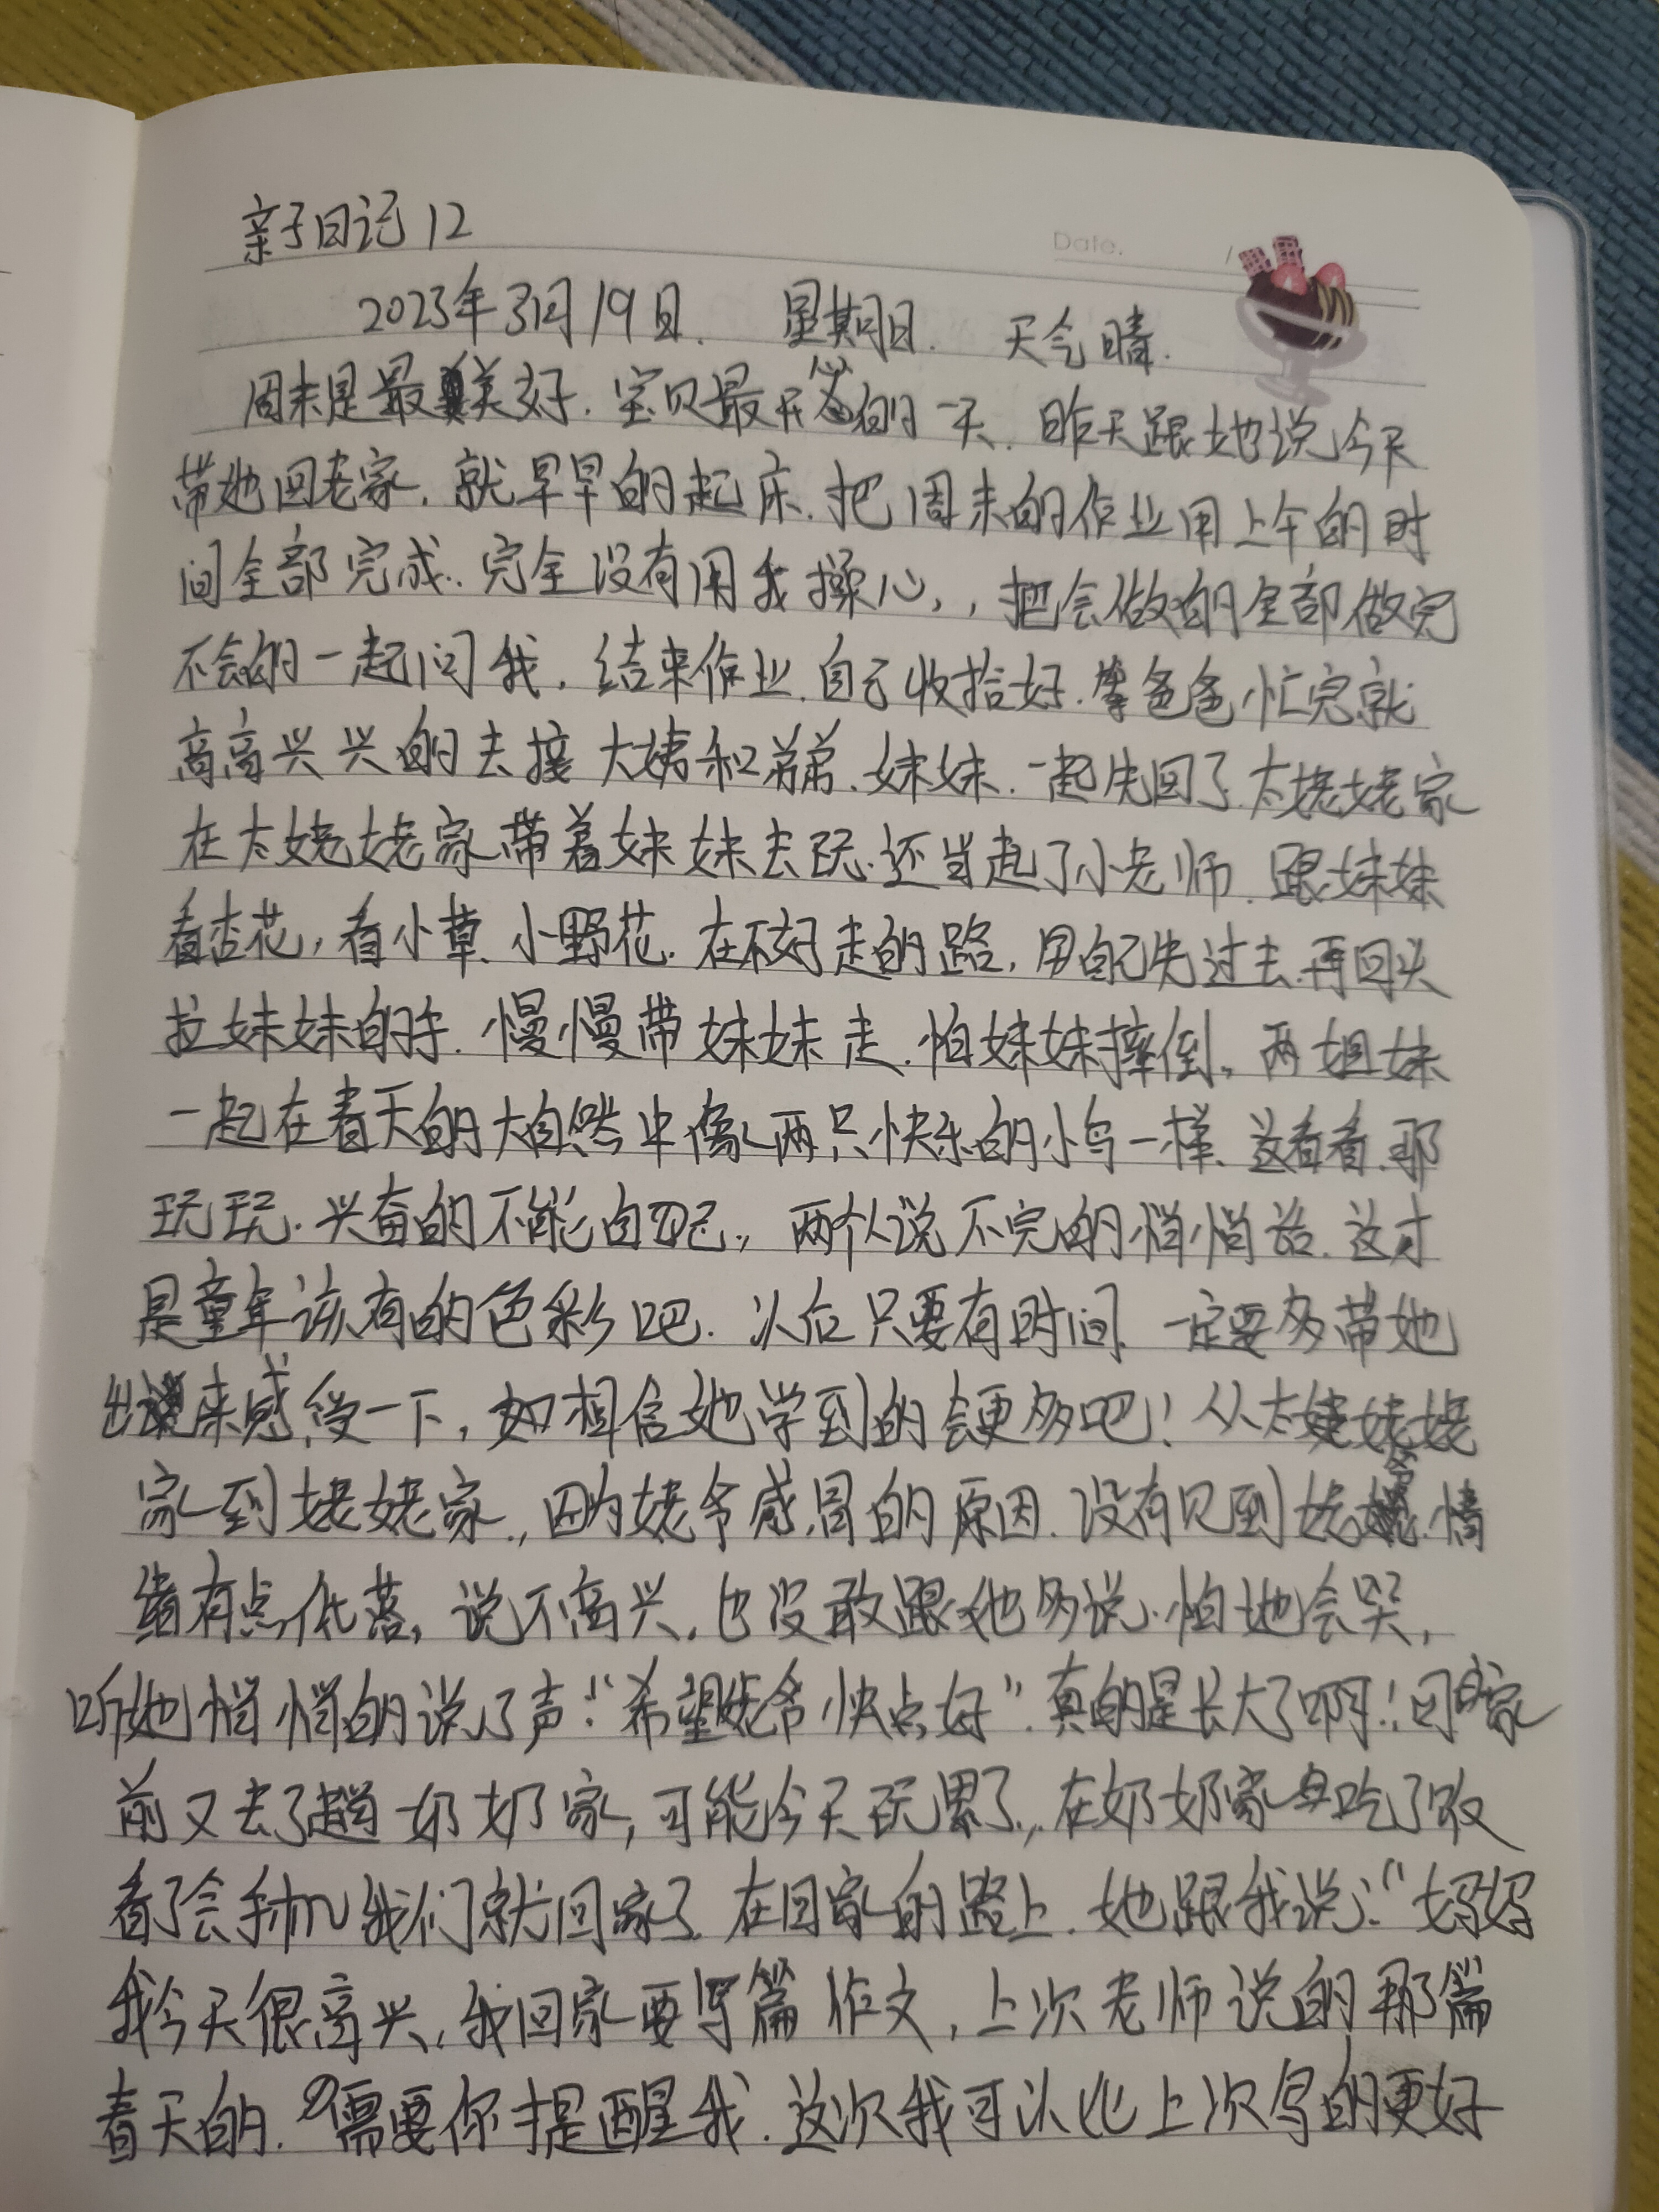 亲子日记12
Date.
2023年3月19日. 星期日. 天气晴.
周末是最美好.宝贝最开心的一天.昨天跟她说今天
带她回老家.就早早的起床.把周末的作业用上午的时
间全部完成.完全没有用我操心,,把会做的全部做完
不会的一起问我.结束作业.自己收拾好.等爸爸忙完就
高高兴兴的去接大姨和弟弟.妹妹.一起先回了太姥姥家
在太姥姥家带着妹妹去玩.还当起了小老师.跟妹妹
看杏花,看小草.小野花.在不好走的路,用自己先过去.再回头
拉妹妹的手.慢慢带妹妹走.怕妹妹摔倒。两姐妹
一起在春天的大自然中像两只快乐的小鸟一样.这看看.那
玩玩.兴奋的不能自己.,两个人说不完的悄悄话.这才
是童年该有的色彩吧.以后只要有时间.一定要多带她
出来感受一下,相信她学到的会更多吧!从太姥姥
家到姥姥家.,因为姥爷感冒的原因.没有见到姥爷.情
绪有点低落,说不高兴.也没敢跟她多说.怕她会哭,
听她悄悄的说了声:“希望姥爷快点好”.真的是长大了啊!回家
前又去了趟奶奶家,可能今天玩累了.,在奶奶家吃了饭
看了会手机我们就回家了.在回家的路上.她跟我说:“妈妈
我今天很高兴,我回家要写篇作文,上次老师说的那篇
春天的.需要你提醒我.这次我可以比上次写的更好